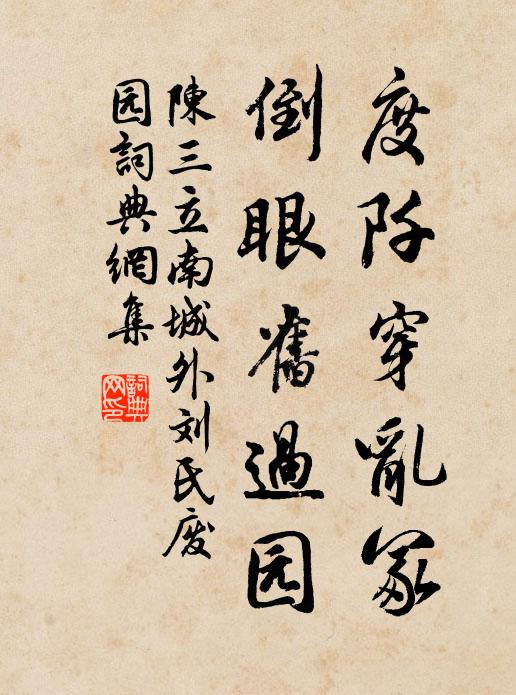 度阡穿亂冢
倒眼舊過园
陳三立南城外刘氏废
园詞典網集
詞典网印